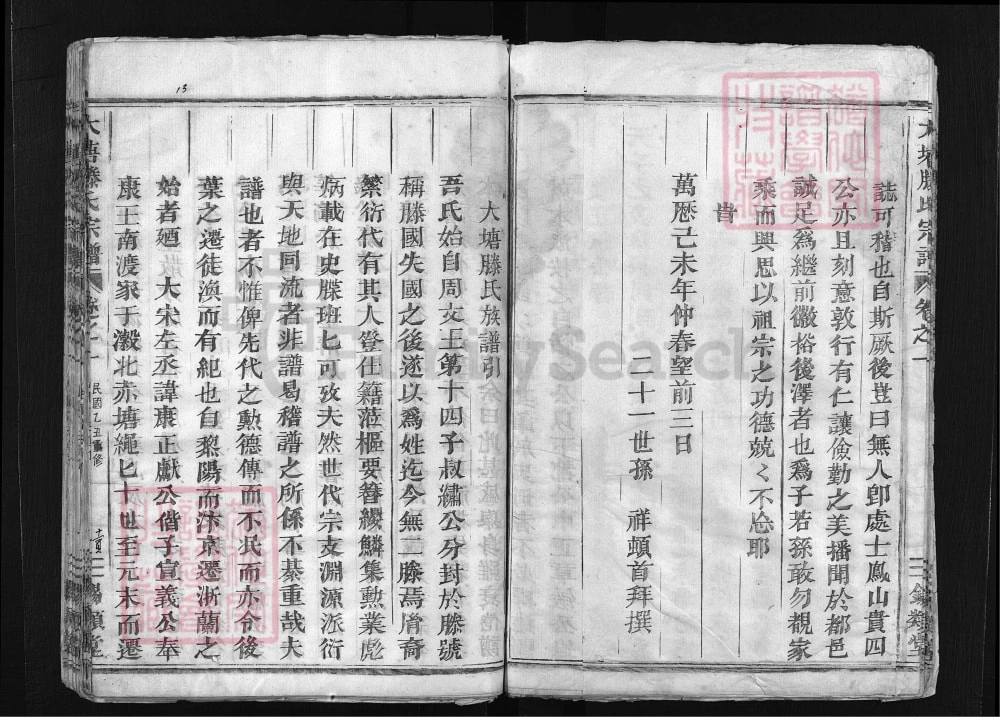 誌可稽也自斯厥後豈曰無人卽處士鳳山貴四
公亦且刻意敦行有仁讓儉勤之美播聞於都邑
誠足爲繼前徽裕後澤者也爲子若孫敢勿覩家
乘而興思以祖宗之功德兢〻不忘耶
旹
萬歷己未年仲春望前三日
二十一世孫 祥頓首拜撰
大塘滕氏宗譜 卷之一
大塘滕氏族譜引
吾氏始自周文王第十四子叔繡公分封於滕號
稱滕國失國之後遂以爲姓迄今無二滕焉胤裔
繁衍代有其人登仕籍蒞樞要簪纓鱗集勲業彪
炳載在史牒班匕可攷夫然世代宗支淵源派衍
與天地同流者非譜曷稽譜之所係不綦重哉夫
譜也者不惟俾先代之勲德傳而不民而亦令後
葉之遷徒渙而有紀也自黎陽而汴京遷浙蘭之
始者廼 大宋左丞諱康正獻公偕子宣義公奉
康王南渡家于瀫北赤塘繩匕十世至元末而遷
大塘滕氏宗譜 卷之一
民國乙丑重修
13
FamilySearch